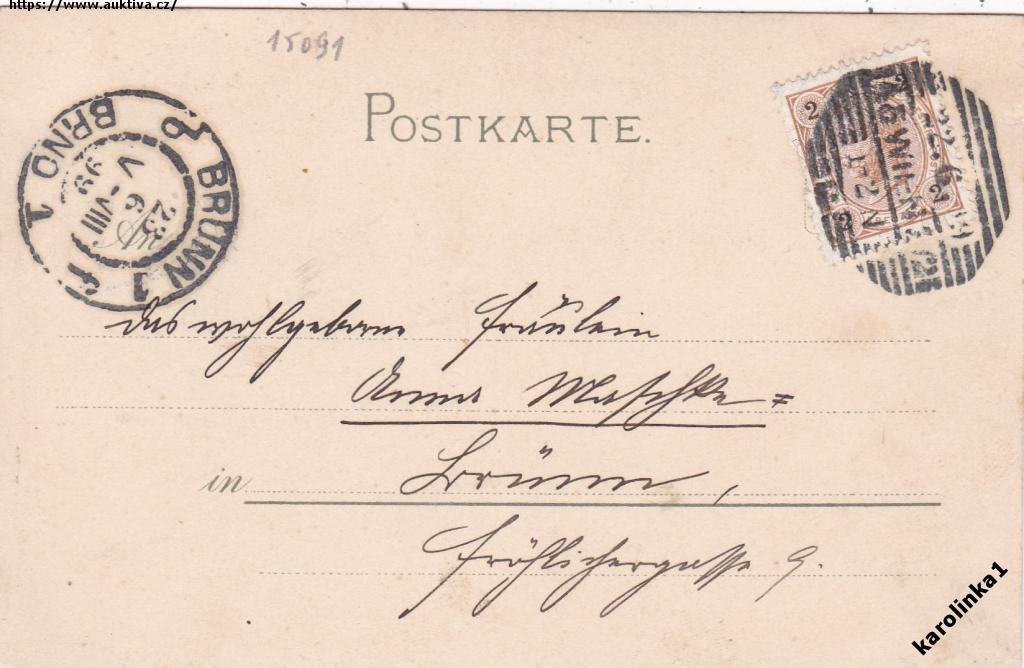 https://www.auktiva.cz/
15091
POSTKARTE.
BRÜNN 1
BRNO 1
23
6 VIII
V 99
2 2
2 2
WIEN
An
das wohlgeborene Fräulein
Anna Maschke
in Brünn,
Fröhlichergasse 9.
karolinka1